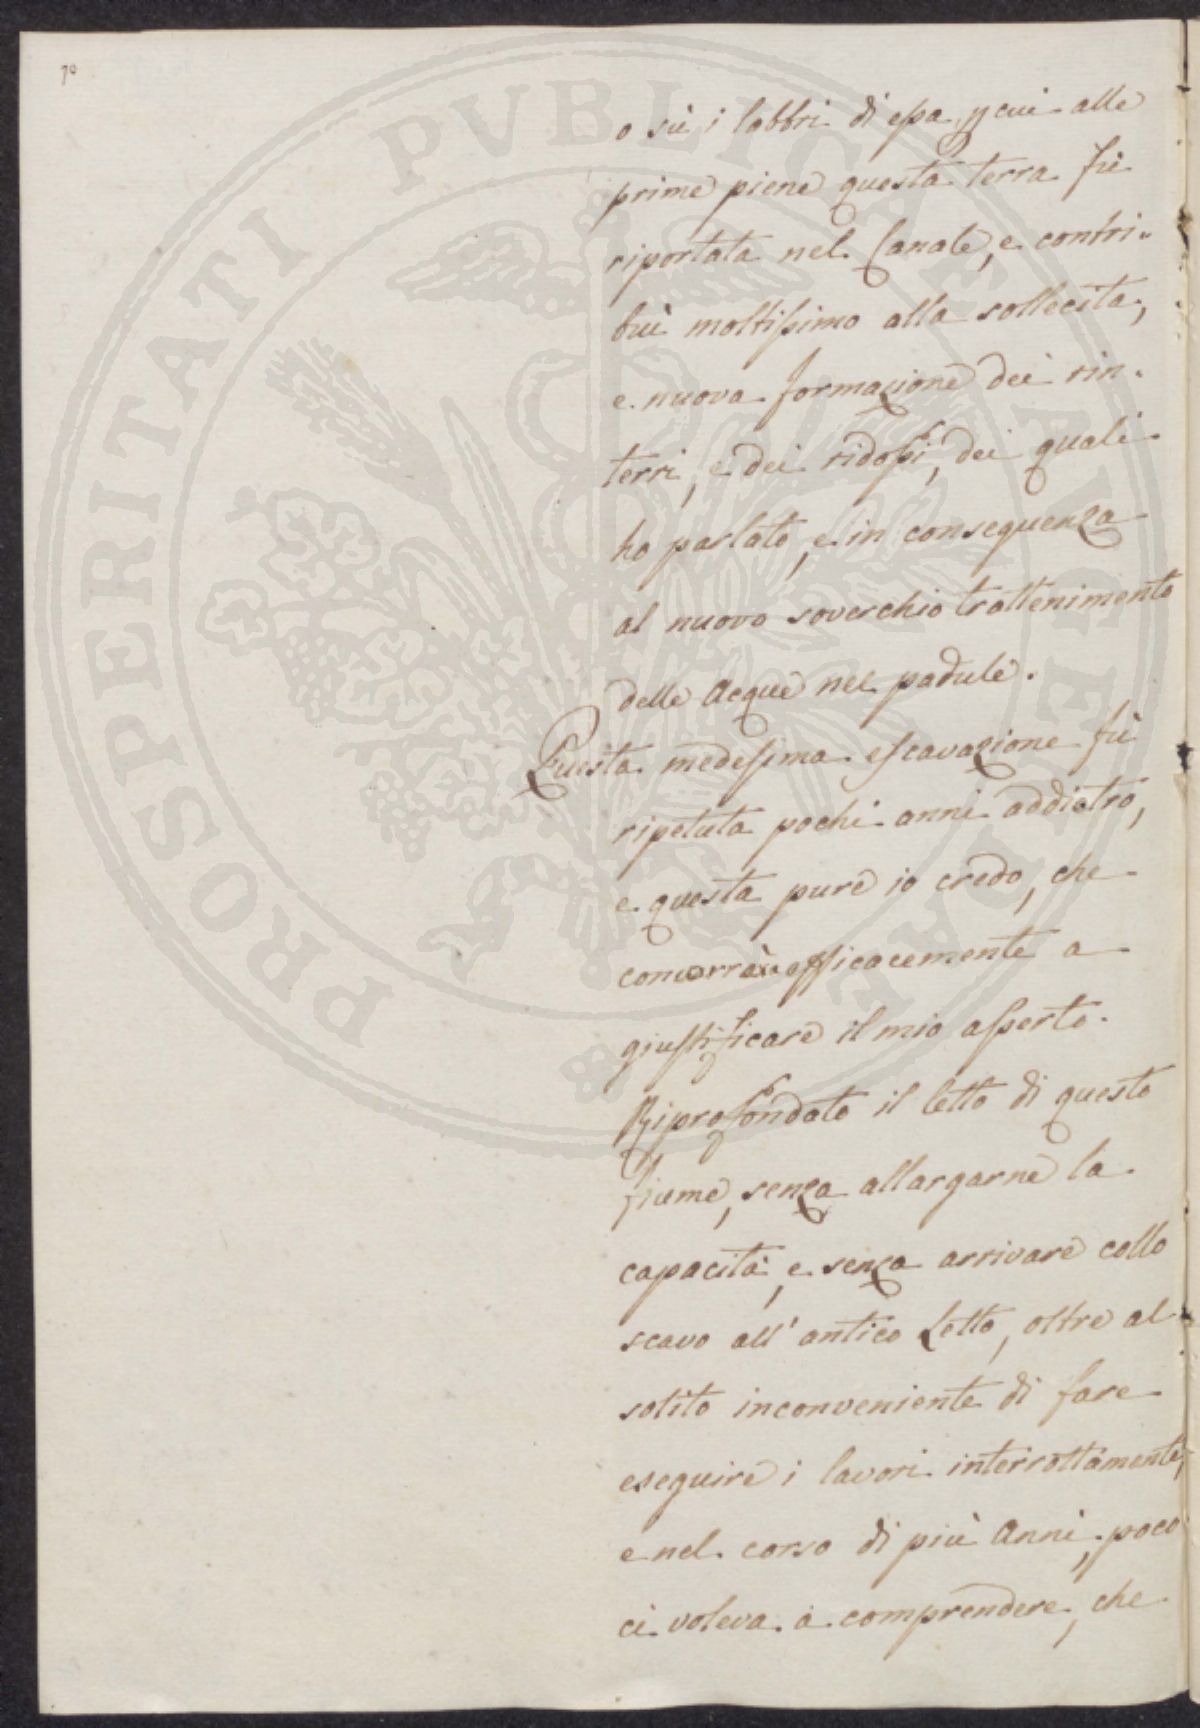 70
o sù i labbri di essa, p cui alle
prime piene questa terra fù
riportata nel Canale, e contri-
buì moltissimo alla sollecita,
e nuova formazione dei rin-
terri, e dei ridossi, dei quali
ho parlato, e in conseguenza
al nuovo soverchio trattenimento
delle Acque nel padule.
Questa medesima escavazione fù
ripetuta pochi anni addietro,
e questa pure io credo, che
concorrà efficacemente a
giustificare il mio asserto.
Riprofondato il letto di questo
fiume, senza allargarne la
capacità, e senza arrivare collo
scavo all' antico Letto, oltre al
solito inconveniente di fare
eseguire i lavori interrottamente,
e nel corso di più Anni, poco
ci voleva a comprendere, che
PROSPERITATI PVBLICAE AVGENDAE